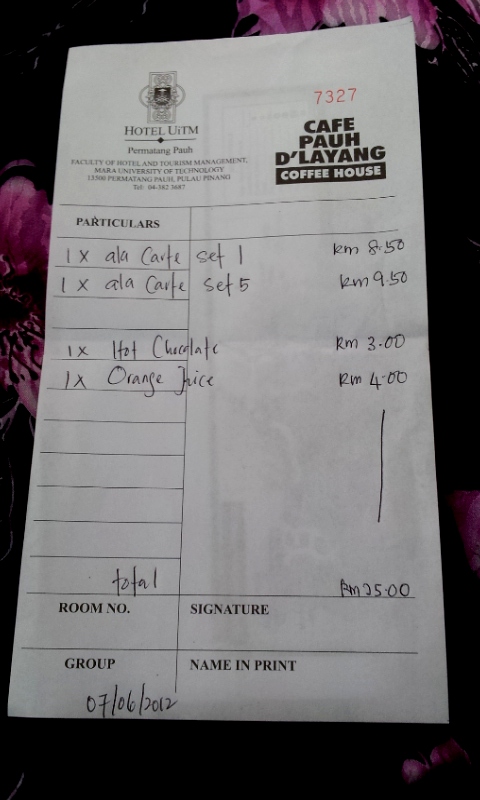 7327
HOTEL UiTM
Permatang Pauh
FACULTY OF HOTEL AND TOURISM MANAGEMENT,
MARA UNIVERSITY OF TECHNOLOGY
13500 PERMATANG PAUH, PULAU PINANG
Tel: 04-382 3687
CAFE
PAUH
D'LAYANG
COFFEE HOUSE
PARTICULARS
1 x ala Carte set 1 RM 8.50
1 x ala Carte set 5 RM 9.50
1x Hot Chocolate RM 3.00
1x Orange Juice RM 4.00
total RM 25.00
ROOM NO. SIGNATURE
GROUP NAME IN PRINT
07/06/2012